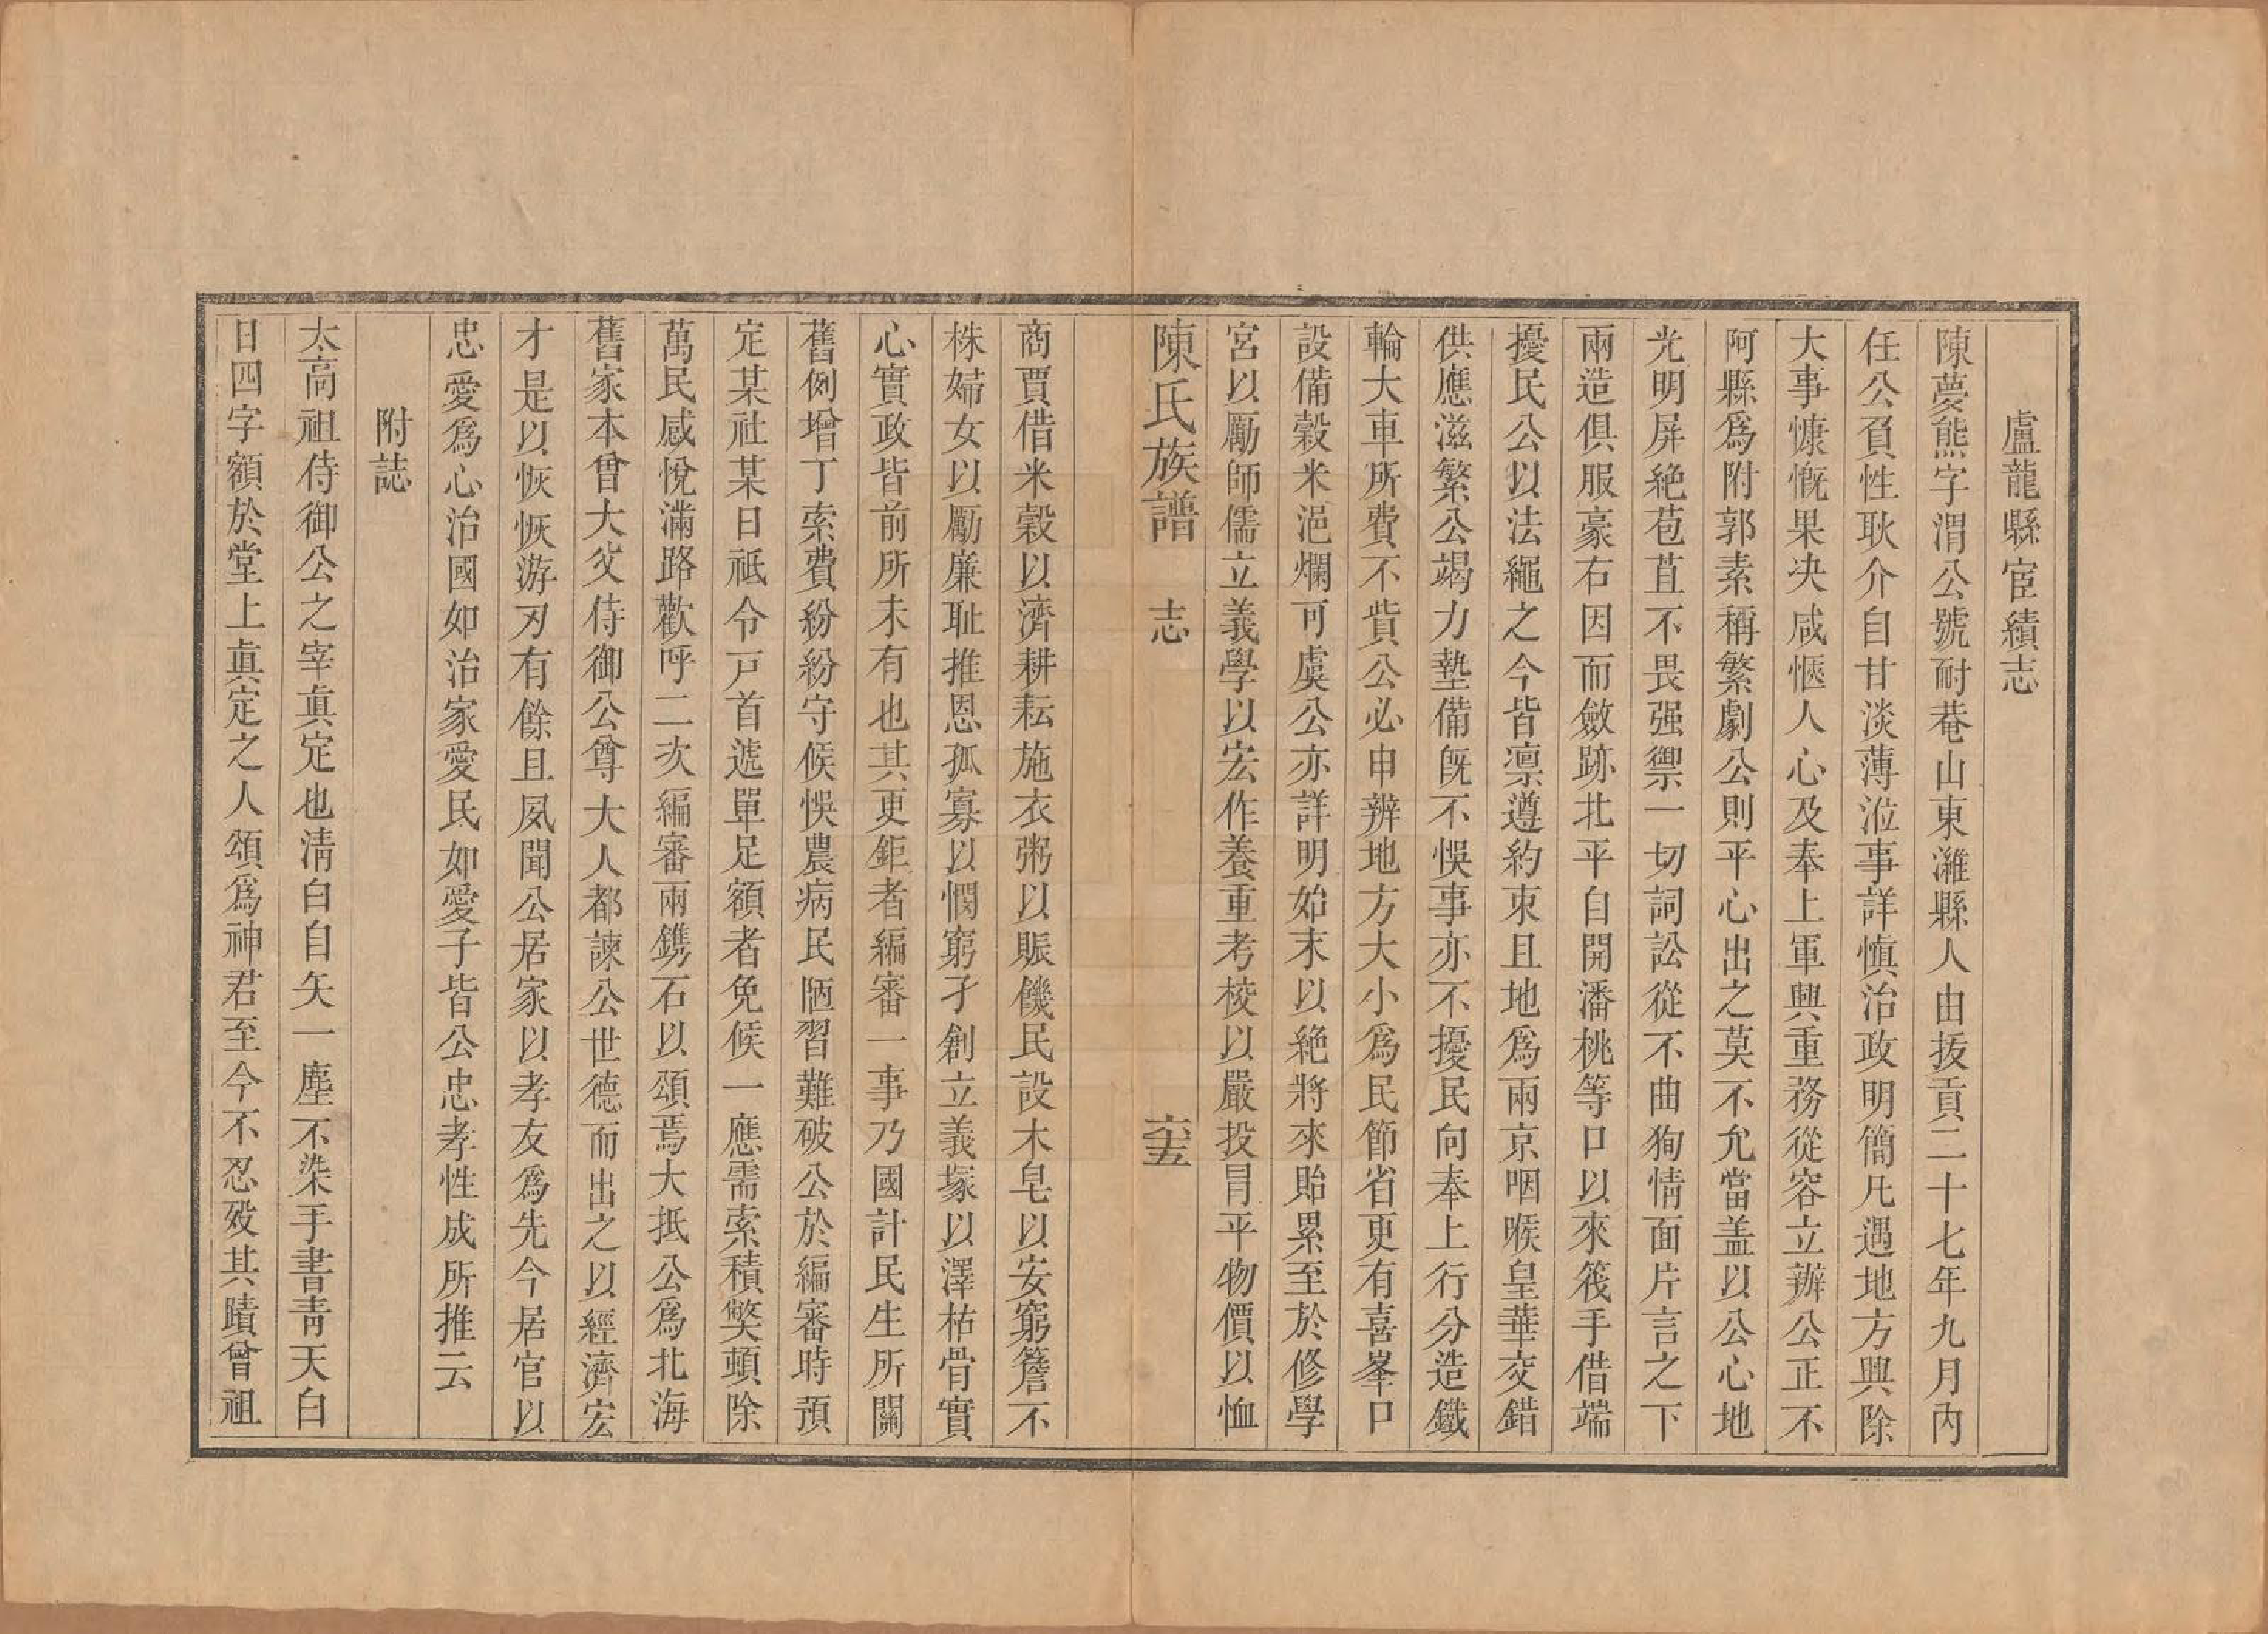 盧龍縣宦績志
陳夢熊字渭公號耐菴山東濰縣人由拔貢二十七年九月內
任公負性耿介自甘淡薄涖事詳愼治政明簡凡遇地方興除
大事慷慨果决咸愜人心及奉上軍興重務從容立辦公正不
阿縣爲附郭素稱繁劇公則平心出之莫不允當盖以公心地
光明屏絕苞苴不畏强禦一切詞訟從不曲狥情面片言之下
兩造俱服豪右因而斂跡北平自開潘桃等口以來筏手借端
擾民公以法繩之今皆凛遵約束且地爲兩京咽喉皇華交錯
供應滋繁公竭力墊備旣不悞事亦不擾民向奉上行分造鐵
輪大車所費不貲公必申辨地方大小爲民節省更有喜峯口
設備穀米浥爛可虞公亦詳明始末以絕將來貽累至於修學
宮以勵師儒立義學以宏作養重考校以嚴投冐平物價以恤
陳氏族譜 志 六五
商賈借米穀以濟耕耘施衣粥以賑饑民設木皂以安窮簷不
株婦女以勵廉耻推恩孤寡以憫窮孑創立義塚以澤枯骨實
心實政皆前所未有也其更鉅者編審一事乃國計民生所關
舊例增丁索費紛紛守候悞農病民陋習難破公於編審時預
定某社某日祇令戸首遞單足額者免候一應需索積獘頓除
萬民感悅滿路歡呼二次編審兩鐫石以頌焉大抵公爲北海
舊家本曾大父侍御公尊大人都諫公世德而出之以經濟宏
才是以恢恢游刃有餘且夙聞公居家以孝友爲先今居官以
忠愛爲心治國如治家愛民如愛子皆公忠孝性成所推云
附誌
太高祖侍御公之宰眞定也淸白自矢一塵不染手書靑天白
日四字額於堂上眞定之人頌爲神君至今不忍歿其蹟曾祖